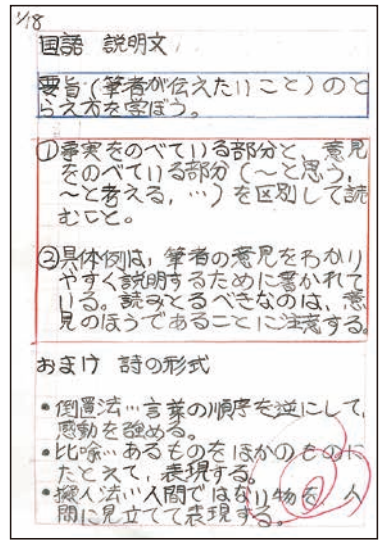 1/18
国語 説明文
要旨(筆者が伝えたいこと)のと
らえ方を学ぼう。
①事実をのべている部分と、意見
をのべている部分(〜と思う、
〜と考える、…)を区別して読
むこと。
②具体例は、筆者の意見をわかり
やすく説明するために書かれて
いる。読みとるべきなのは、意
見のほうであることに注意する。
おまけ 詩の形式
•倒置法…言葉の順序を逆にして、
感動を強める。
•比喩…あるものをほかのものに
たとえて、表現する。
•擬人法…人間ではない物を、人
間に見立てて表現する。